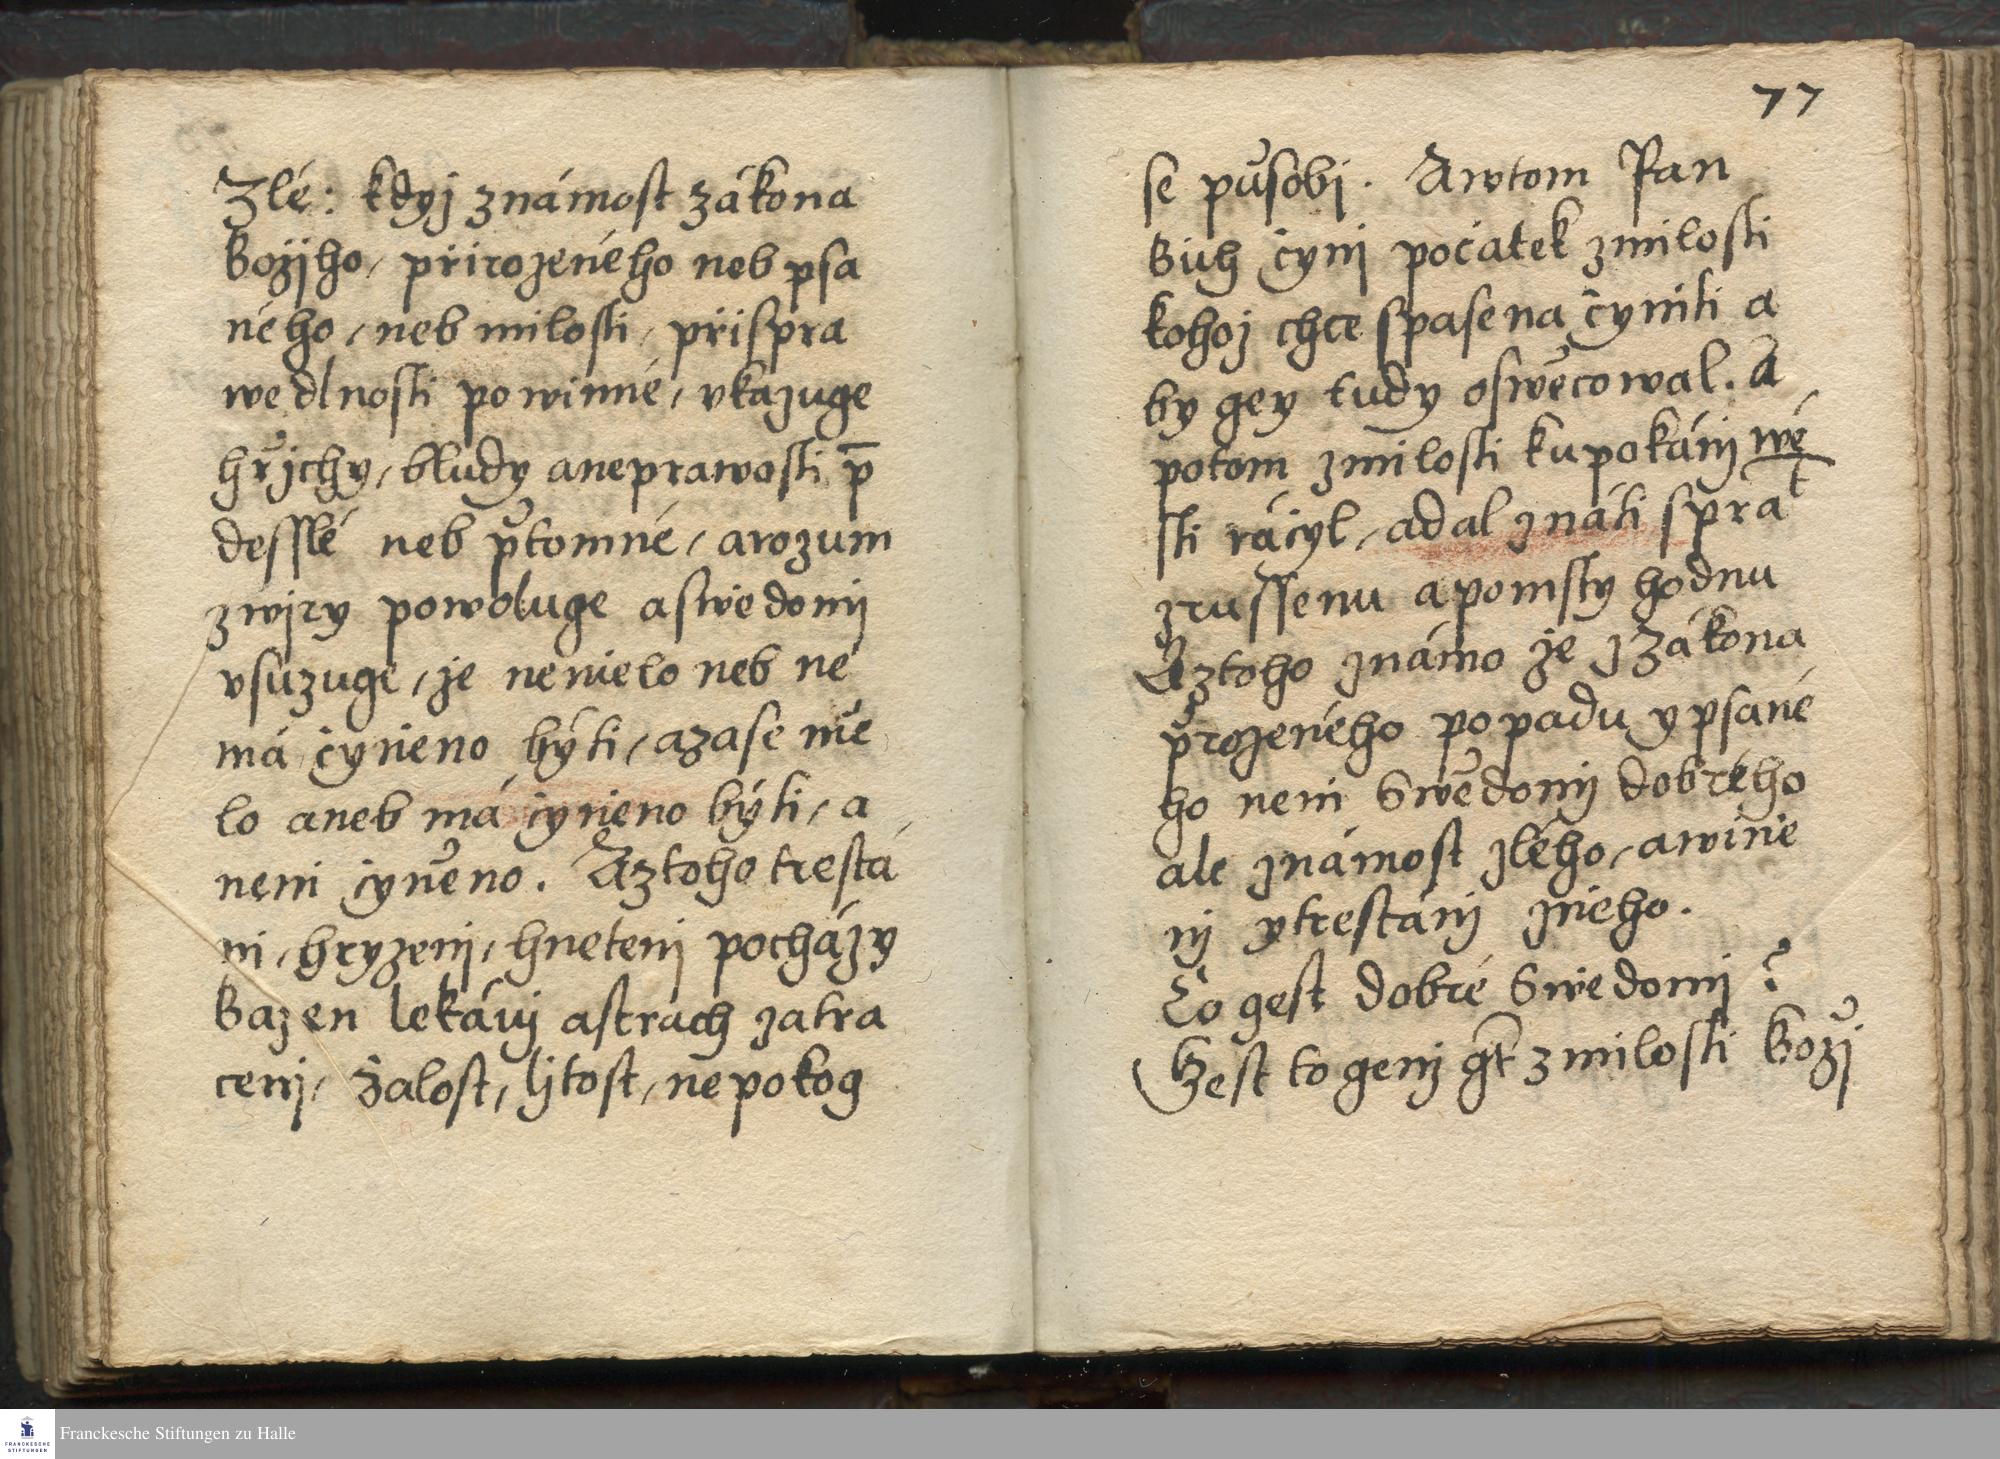 Zlé: kdyj známost zákona
Božijho, přirozeného neb psa
ného, neb milosti, přispra
wedlnosti powinné, vkazuge
hřjchy, bludy aneprawosti p̄
desslé neb přtomné, arozum
zwjry powoluge aswědomij
vsuzuge, že nemělo neb ne
má čyněno býti, azase mě
lo aneb má čyněno býti, a
neni čyněno. Aztoho trestá
ni, hryzenj, hnětenj pocházy
Bazen lekánj astrach zatra
cenj, žalost, ljtost, nepokog
77
se působj. Awtom Pan
Bůh čynj počátek zmilosti
kohoj chce spasena čyniti a
by gey tudy oswěcowal. A
potom zmilosti kupokánj wé
sti ráčyl, adal znáti sprat
zrussenu apomsty hodnu
Aztoho známo že zZákona
přrozeného popadu ypsané
ho neni Swědomij dobrého
ale známost zlého, awině
nj ytrestánj zněho.
Co gest dobré Swědomj?
Gest to genž gt̄ zmilosti Božj
Franckesche Stiftungen zu Halle
FRANCKESCHE
STIFTUNGEN